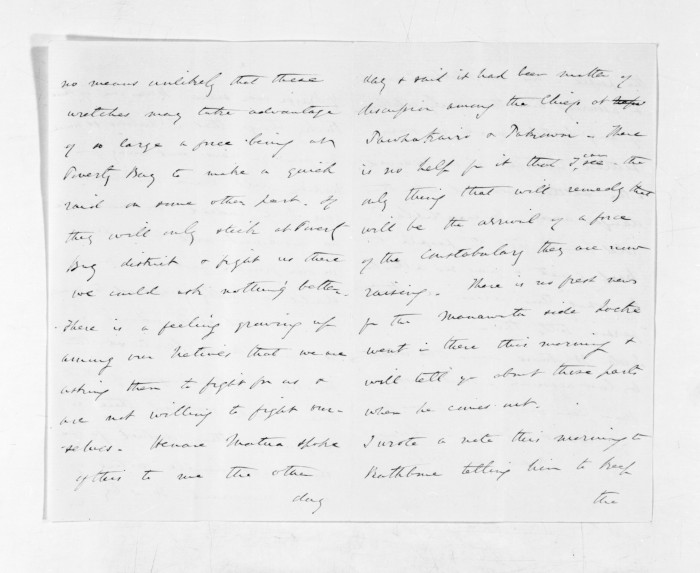 no means unlikely that these
wretches may take advantage
of so large a force being at
Poverty Bay to make a quick
raid on some other part. If
they will only stick at Poverty
Bay district & fight us there
we could ask nothing better.
There is a feeling growing up
among our Natives that we are
asking them to fight for us &
are not willing to fight our-
-selves. Henare Matua spoke
of this to me the other
day
day & said it had been matter of
discussion among the Chiefs at
Pawhakairo & Pakowai. There
is no help for it that I can see. the
only thing that will remedy that
will be the arrival of a force
of the Constabulary they are now
raising. There is no fresh news
fr the Manawatu side Locke
went in there this morning &
will tell yo about those parts
when he comes out.
I wrote a note this morning to
Rathbone telling him to keep
the